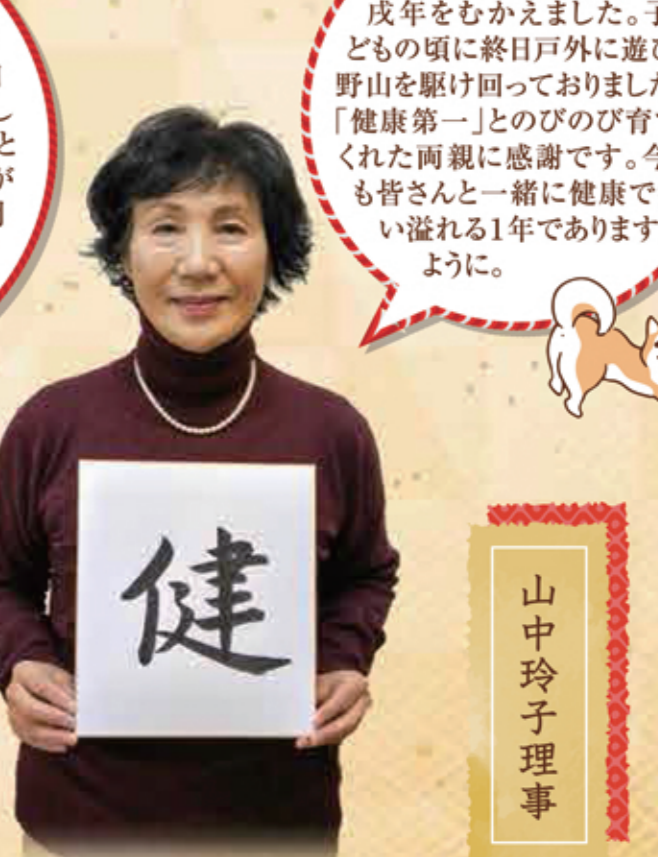 戌年をむかえました。子
どもの頃に終日戸外に遊び
野山を駆け回っておりました
「健康第一」とのびのび育て
くれた両親に感謝です。今
も皆さんと一緒に健康で
い溢れる1年であります
ように。
し
と
が
健
山中玲子理事